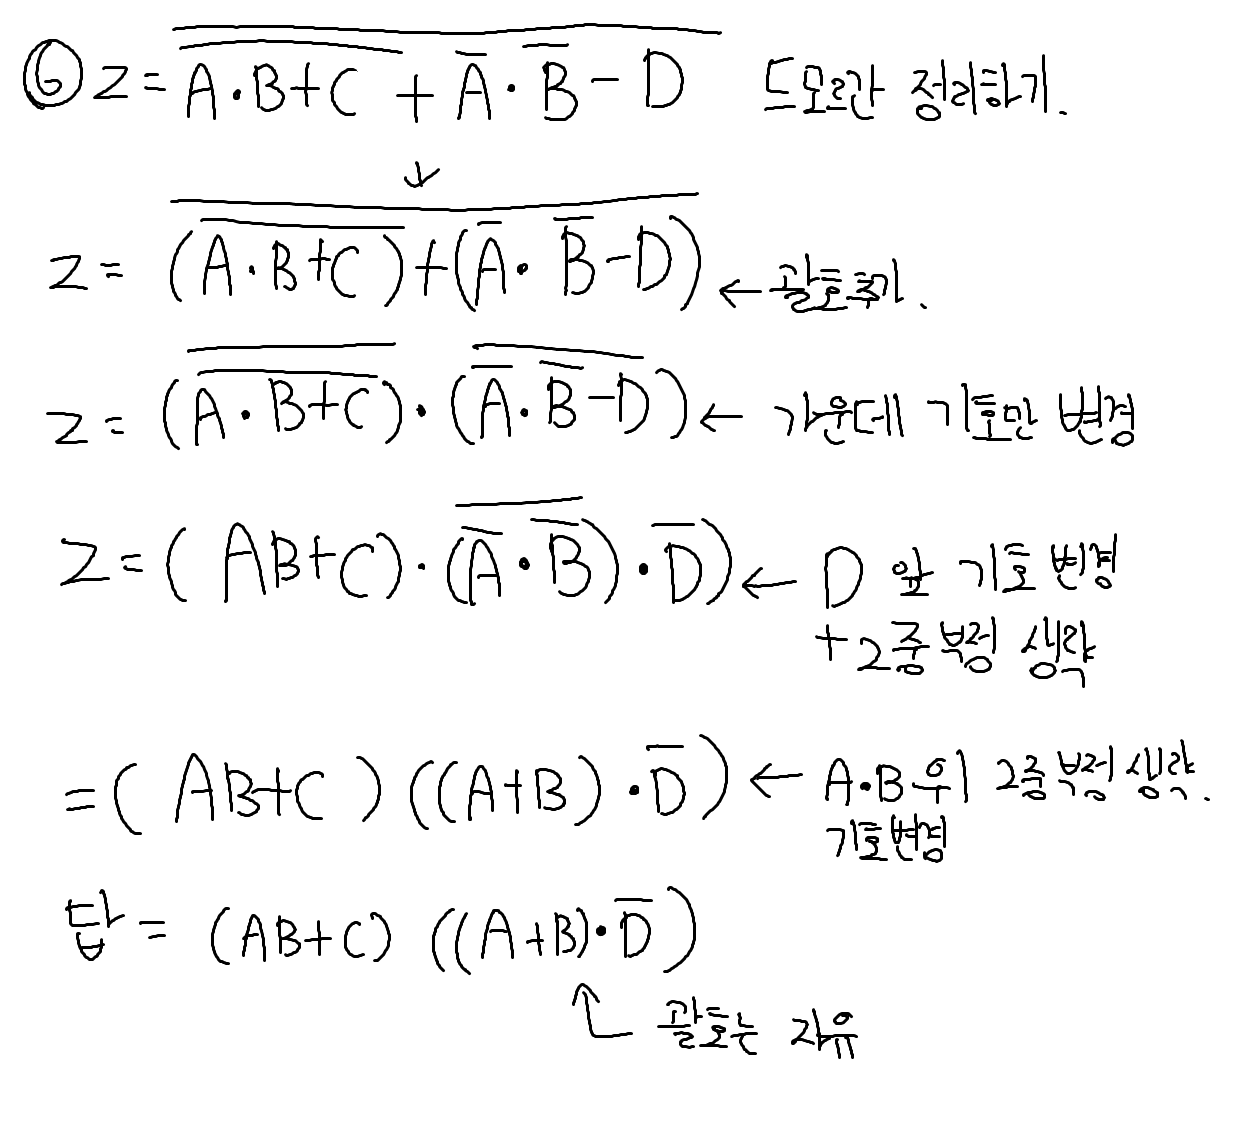 ⑥ Z = \overline{\overline{A·B+C} + \overline{A}·\overline{B} - D} 드모르간 정리하기.
↓
Z = \overline{(\overline{A·B+C})+(\overline{A}·\overline{B}-D)} ← 괄호추가.
Z = (\overline{\overline{A·B+C}})·(\overline{\overline{A}·\overline{B}-D}) ← 가운데 기호만 변경
Z = (AB+C)·(\overline{\overline{A}·\overline{B}})·\overline{D}) ← D 앞 기호 변경
+2중 부정 생략
= (AB+C)((A+B)·\overline{D}) ← A·B 위 2중 부정 생략.
기호변경
답 = (AB+C) ((A+B)·\overline{D})
괄호는 자유